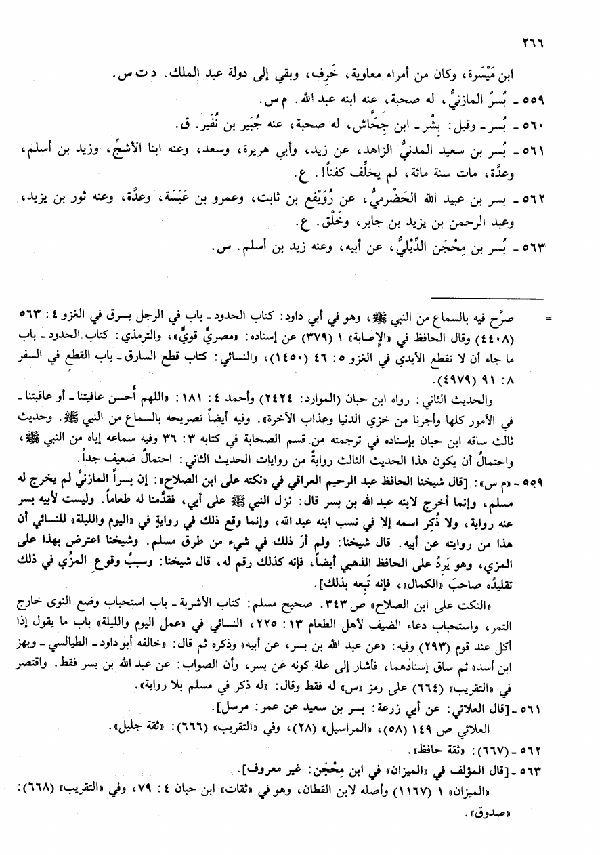 ٢٦٦
ابن مَيْسَرة، وكان من أمراء معاوية، خَرِف، وبقي إلى دولة عبد الملك. د ت س.
٥٥٩ ـ بُسرٌ المازنيُّ، له صحبة، عنه ابنه عبد الله. م س.
٥٦٠ ـ بُسر ـ وقيل: بِشْر ـ ابن جَحَّاش، له صحبة، عنه جُبَير بن نُفَير. ق.
٥٦١ ـ بُسر بن سعيد المدنيُّ الزاهد، عن زيد، وأبي هريرة، وسعد، وعنه ابنا الأشجِّ، وزيد بن أسلم،
وعدَّة، مات سنة مائة، لم يخلِّف كفناً. ع.
٥٦٢ ـ بسر بن عبيد الله الحَضْرميُّ، عن رُوَيْفع بن ثابت، وعمرو بن عَبَسَة، وعدَّة، وعنه ثور بن يزيد،
وعبد الرحمن بن يزيد بن جابر، وخَلْق. ع.
٥٦٣ ـ بُسر بن مِحْجَن الدِّيْليُّ، عن أبيه، وعنه زيد بن أسلم. س.
= صرَّح فيه بالسماع من النبي ﷺ، وهو في أبي داود: كتاب الحدود ـ باب في الرجل يسرق في الغزو ٤: ٥٦٣
(٤٤٠٨) وقال الحافظ في «الإصابة» ١ (٣٧٩) عن إسناده: «مصريٌّ قويٌّ»، والترمذي: كتاب الحدود ـ باب
ما جاء أن لا تقطع الأيدي في الغزو ٥: ٤٦ (١٤٥٠)، والنسائي: كتاب قطع السارق ـ باب القطع في السفر
٨: ٩١ (٤٩٧٩).
والحديث الثاني: رواه ابن حبان (الموارد: ٢٤٢٤) وأحمد ٤: ١٨١: «اللهم أحسن عافيتنا ـ أو عاقبتنا ـ
في الأمور كلها وأجرنا من خزي الدنيا وعذاب الآخرة». وفيه أيضاً تصريحه بالسماع من النبي ﷺ. وحديث
ثالث ساقه ابن حبان بإسناده في ترجمته من قسم الصحابة في كتابه ٣: ٣٦ وفيه سماعه إياه من النبي ﷺ،
واحتمالُ أن يكون هذا الحديث الثالث روايةً من روايات الحديث الثاني: احتمالٌ ضعيف جداً.
٥٥٩ ـ «م س»: [قال شيخنا الحافظ عبد الرحيم العراقي في «نكته على ابن الصلاح»: إن بسراً المازنيَّ لم يخرج له
مسلم، وإنما أخرج لابنه عبد الله بن بسر قال: نزل النبي ﷺ على أبي، فقدَّمنا له طعاماً. وليست لأبيه بسر
عنه رواية، ولا ذُكِر اسمه إلا في نسب ابنه عبد الله، وإنما وقع ذلك في روايةٍ في «اليوم والليلة» للنسائي أن
هذا من روايته عن أبيه. قال شيخنا: ولم أرَ ذلك في شيء من طرق مسلم. وشيخنا اعترض بهذا على
المزي، وهو يَرِدُ على الحافظ الذهبي أيضاً، فإنه كذلك رقم له، قال شيخنا: وسببُ وقوعِ المزّي في ذلك
تقليدُه صاحبَ «الكمال»، فإنه تَبِعه بذلك].
«النكت على ابن الصلاح» ص ٣٤٣. صحيح مسلم: كتاب الأشربة ـ باب استحباب وضع النوى خارج
التمر، واستحباب دعاء الضيف لأهل الطعام ١٣: ٢٢٥، النسائي في «عمل اليوم والليلة» باب ما يقول إذا
أكل عند قوم (٢٩٣) وفيه: «عن عبد الله بن بسر، عن أبيه» وذكره ثم قال: «خالفه أبو داود ـ الطيالسي ـ وبهز
ابن أسد» ثم ساق إسنادهما، فأشار إلى علة كونه عن بسر، وأن الصواب: عن عبد الله بن بسر فقط. واقتصر
في «التقريب» (٦٦٤) على رمز «س» له فقط وقال: «له ذكر في مسلم بلا رواية».
٥٦١ ـ [قال العلائي: عن أبي زرعة: بسر بن سعيد عن عمر: مرسل].
العلائي ص ١٤٩ (٥٨)، «المراسيل» (٢٨)، وفي «التقريب» (٦٦٦): «ثقة جليل».
٥٦٢ ـ (٦٦٧): «ثقة حافظ».
٥٦٣ ـ [قال المؤلف في «الميزان» في ابن مِحْجَن: غير معروف].
«الميزان» ١ (١١٦٧) وأصله لابن القطان، وهو في «ثقات» ابن حبان ٤: ٧٩، وفي «التقريب» (٦٦٨):
«صدوق».